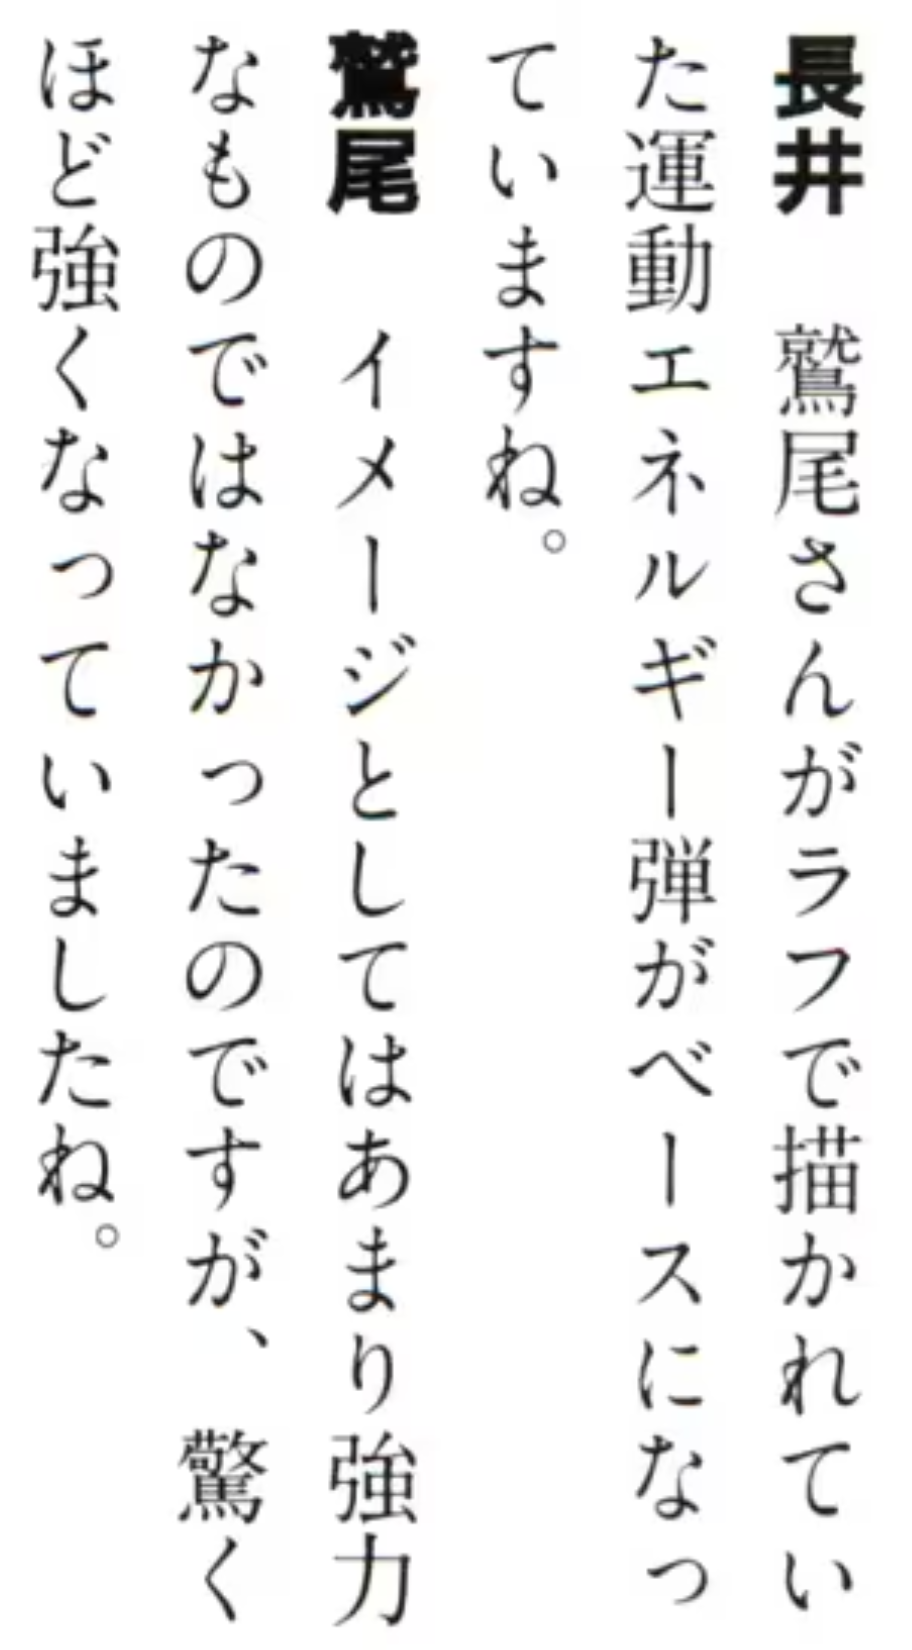 長井　鷲尾さんがラフで描かれてい
た運動エネルギー弾がベースになっ
ていますね。
鷲尾　イメージとしてはあまり強力
なものではなかったのですが、驚く
ほど強くなっていましたね。